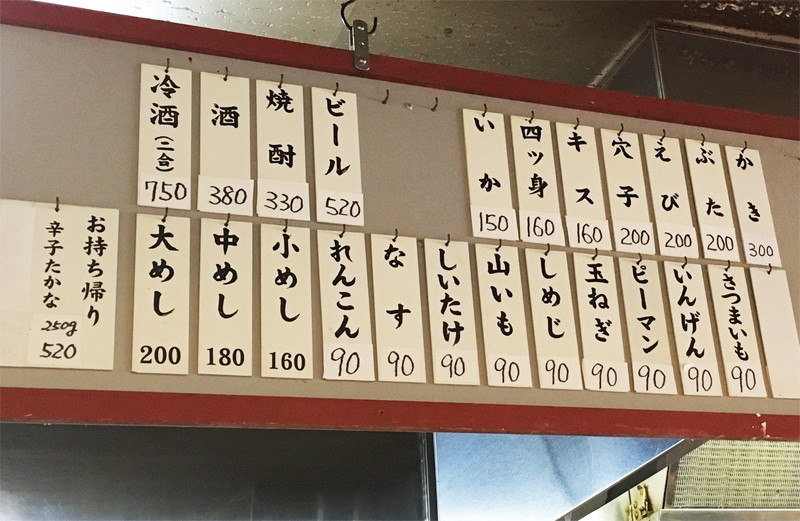 かき 300
ぶた 200
えび 200
穴子 200
キス 160
四ッ身 160
いか 150
ビール 520
焼酎 330
酒 380
冷酒(二合) 750
さつまいも 90
いんげん 90
ピーマン 90
玉ねぎ 90
しめじ 90
山いも 90
しいたけ 90
なす 90
れんこん 90
小めし 160
中めし 180
大めし 200
お持ち帰り
辛子たかな 250g 520